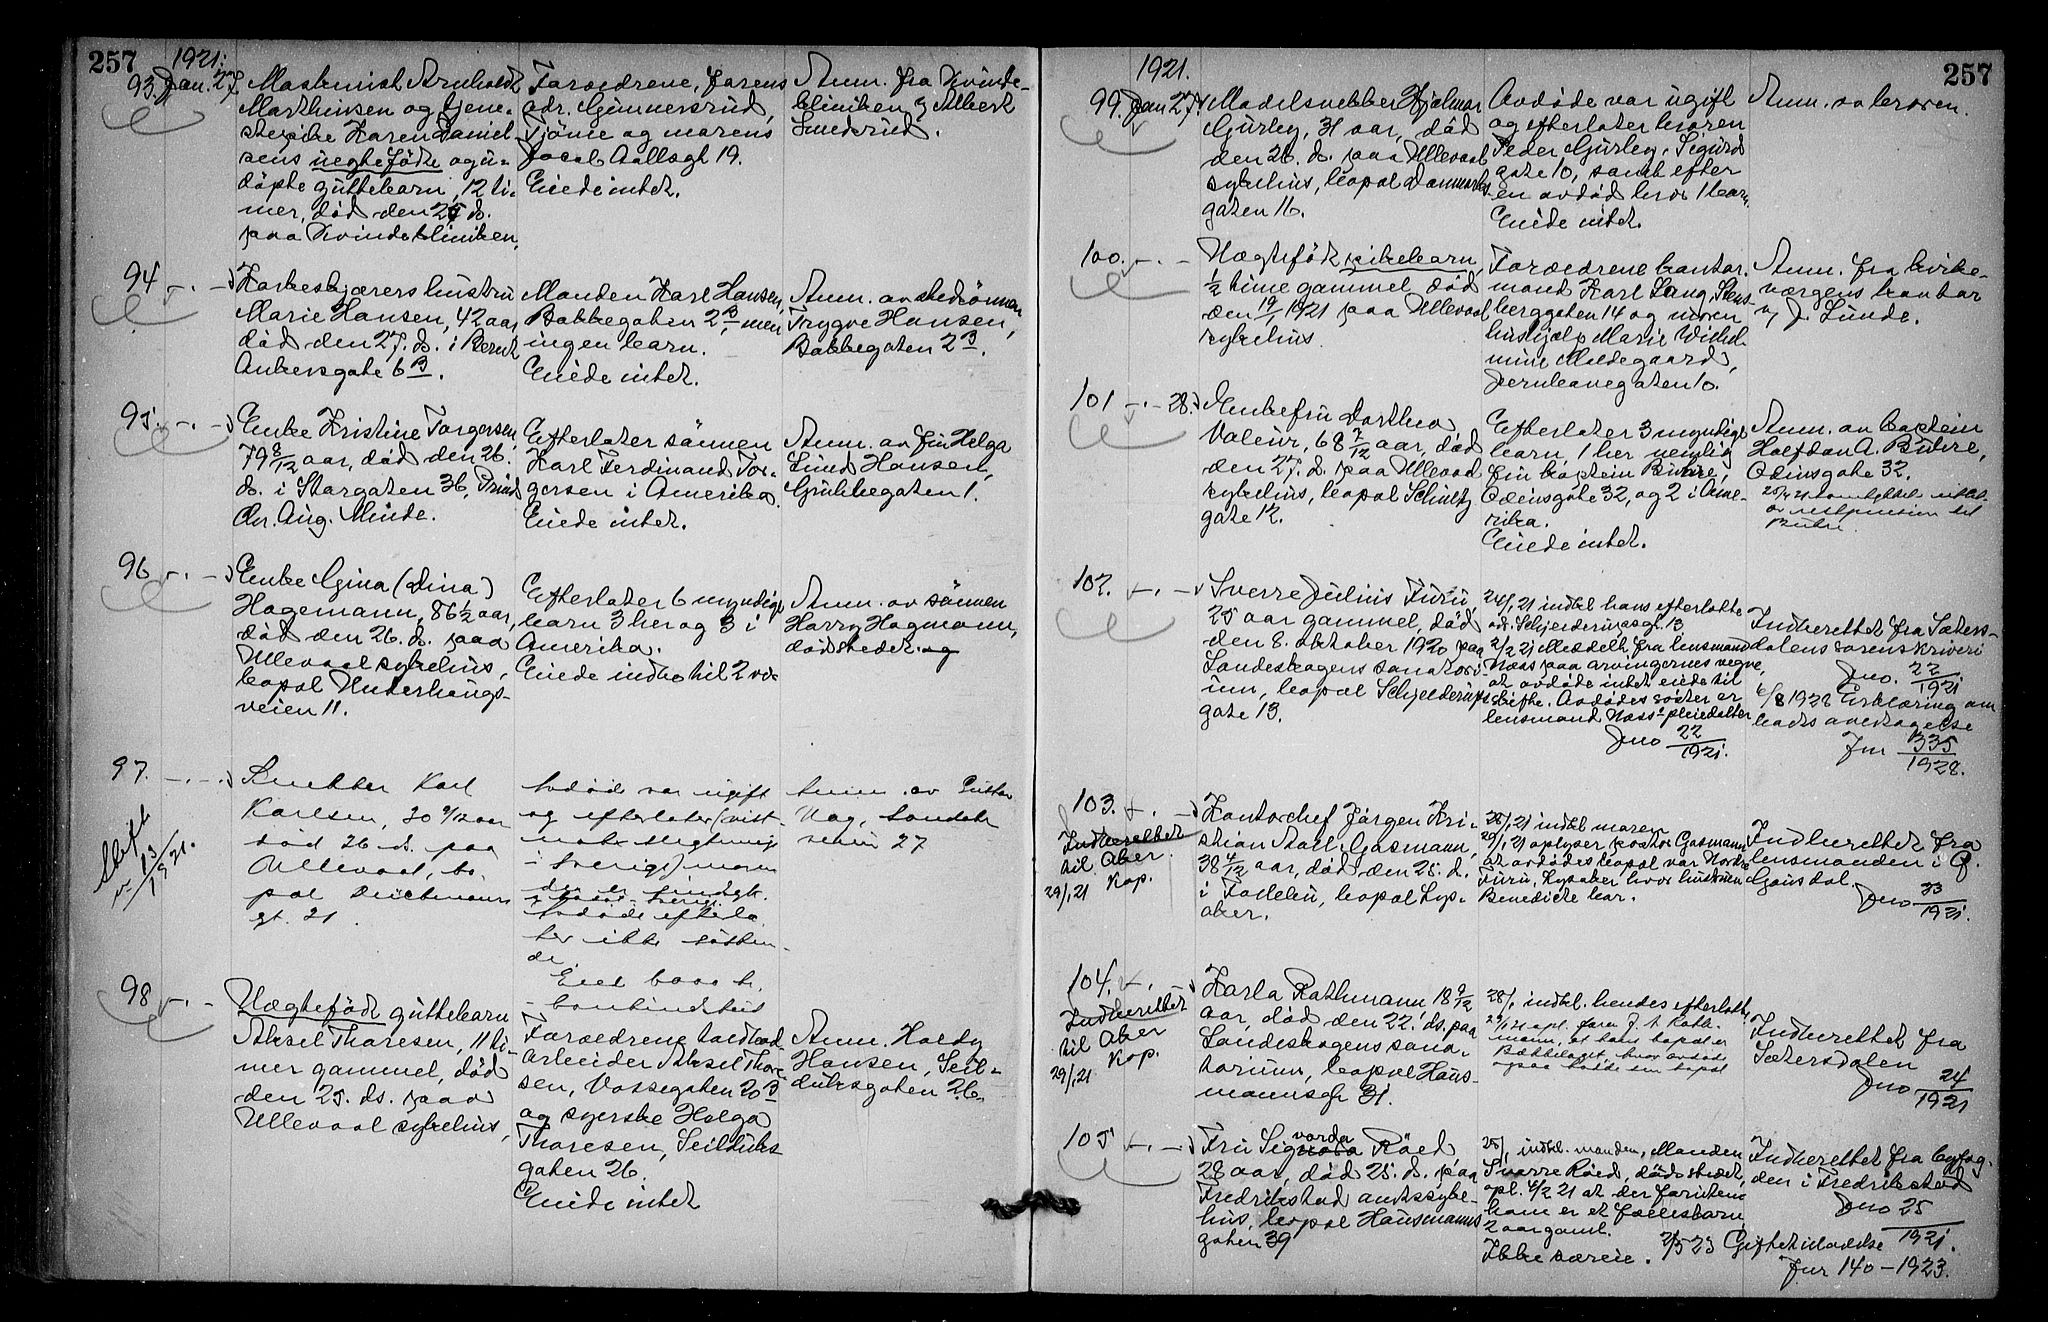 257
1921.
93. Jan. 27. Maskinist Arnholdt
Marthinsen og tjene-
stepike Karen Daniel-
sens uegte fødte og u-
døpte guttebarn, 12 ti-
mer, død den 25 ds.
paa Kvindeklinikken.
Forældrene, farens
adr. Gunnersrud,
Tjøme og morens
Jacob Aallsgt 19.
Eiede intet.
Anm. fra Kvinde-
klinikken v/ Albert
Smedsrud.
94 -.-
Marie Hansen, 42 aar,
død den 27. ds. i Bernt
Ankersgate 6 B.
Manden Karl Hansen,
Bakkegaten 2 B, men
ingen barn.
Eiede intet.
Anm. av stedsønnen
Trygve Hansen,
Bakkegaten 2 B.
95. -.- Enke Kristine Torgersen,
79 8/12 aar, død den 26.
ds. i Storgaten 36, Prinds
Chr. Aug. Minde.
Efterlater sønnen
Karl Ferdinand Tor-
gersen i Amerika.
Eiede intet.
Anm. av frk Helga
Lund Hansen,
Grubbegaten 1.
96 -.- Enke Gina (Dina)
Hagemann, 86 1/2 aar,
død den 26. ds. paa
Ullevaal sykehus,
bopæl Underhaugs-
veien 11.
Efterlater 6 myndige
barn 3 her og 3 i
Amerika.
Eiede indbo til 2 vær
Anm. av sønnen
Harry Hagemann,
dødstedet. og
97. -.- Snekker Karl
Karlsen, 30 9/12 aar
død 26 ds. paa
Ullevaal, bo-
pæl Deichmans
gt. 21.
Skifte
Avdøde var ugift
og efterlater (vist-
nok slegtninge
i Sverige) moren
Avdøde efterla-
ter ikke søsken-
de.
Anm. av
Haug,
veien 27
98 -.- Uegtefødt guttebarn
Aksel Thoresen, 11 ti-
mer gammel, død
den 25. ds. paa
Ullevaal sykehus,
Forældrene
arbeider Aksel Thore-
sen, Vossegaten 20 B
og syerske Helga
Thoresen, Seilduks-
gaten 26.
Eiede intet
Anm. Hardy
Hansen, Seil-
duksgaten 26.
257
1921.
99. Jan 27. Modelsnekker Hjalmar
Gurley, 31 aar, død
den 26. ds. paa Ullevaal
sykehus, bopæl Danmarks-
gaten 16.
Avdøde var ugift
og efterlater broren
Peder Gurley, Sigurds
gate 10, samt efter
en avdød bror 1 barn.
Eiede intet.
Anm. av broren.
100. -.- Uegtefødt pikebarn,
1/2 time gammel, død
den 19/1 1921 paa Ullevaal
sykehus.
Forældrene kontor-
mand Karl Lang, Stens-
berggaten 14 og moren
hushjælp Marie Wilhel-
mine Moldegaard,
Jernbanegaten 10.
Anm. fra kirke-
vergens kontor
v/ J. Lunde.
101 -.- 28. Enkefru Dorthea
Valeur, 68 7/12 aar, død
den 27. ds. paa Ullevaal
sykehus, bopæl Schultz
gate 12.
Efterlater 3 myndige
barn, 1 her nemlig
fru kaptein Butre,
Odinsgate 32, og 2 i Ame-
rika.
Eiede intet.
Anm. av kaptein
Halfdan A. Butre,
Odinsgate 32.
102. -.- Sverre Julius Furu,
25 aar gammel, død
den 8. oktober 1920 paa
Landeskogens sanatori-
um, bopæl Schjelderups
gate 13.
24/1 21 indkl hans efterlatte
adr. Schjelderupsgt. 13
2/2 21 Meddelt fra lensmand
Næss paa arvingernes vegne,
at avdøde intet eiede til
skifte. Avdødes søster er
lensmand Næss' pleiedatter
Jno 22/1921.
Indberettet fra Sæters-
dalens sorenskriveri
Jno. 22/1921
6/8 1928 Erklæring om
boets overtagelse
Jnr 335/1928.
103. -.- Kontorchef Jørgen Kri-
stian Marl. Gasmann,
38 4/12 aar, død den 25. ds.
i Follebu, bopæl Lys-
aker.
Indberettet
til Aker
Kop.
29/1 21
28/1 21 indkl moren
29/1 21 oplyser pastor Gasmann
at avdødes bopæl var Nordre
Furu, Lysaker hvor hustruen
Benedicte bor.
Indberettet fra
lensmanden i Ø.
Gausdal.
Jno 33/1921.
104. -.- Karla Rathmann 18 9/12
aar, død den 22. ds. paa
Landeskogens sana-
torium, bopæl Haus-
mannsgt 31.
Indberettet
til Aker
Kop.
29/1 21
28/1 indkl. hendes efterlatte,
29/1 21 opl. faren J. A Rath-
mann, at hans bopæl er
Bækkelaget, hvor avdøde
ogsaa hadde sin bopæl
Indberettet fra
Sætersdalen
Jno 24/1921
105 -.- Fru Sigvarda Røed,
28 aar, død 25. ds. paa
Fredrikstad amtssyke-
hus, bopæl Hausmanns
gaten 39
28/1 indkl. manden, Manden
Sverre Röed, dødsstedet,
opl. 4/2 21 at der foruten
ham er et fællesbarn
2 aar gaml.
Ikke særeie.
Indberettet fra byfog-
den i Fredrikstad
Jno 25/1921.
2/5 23 Giftetilladelse
Jnr 140 - 1923.